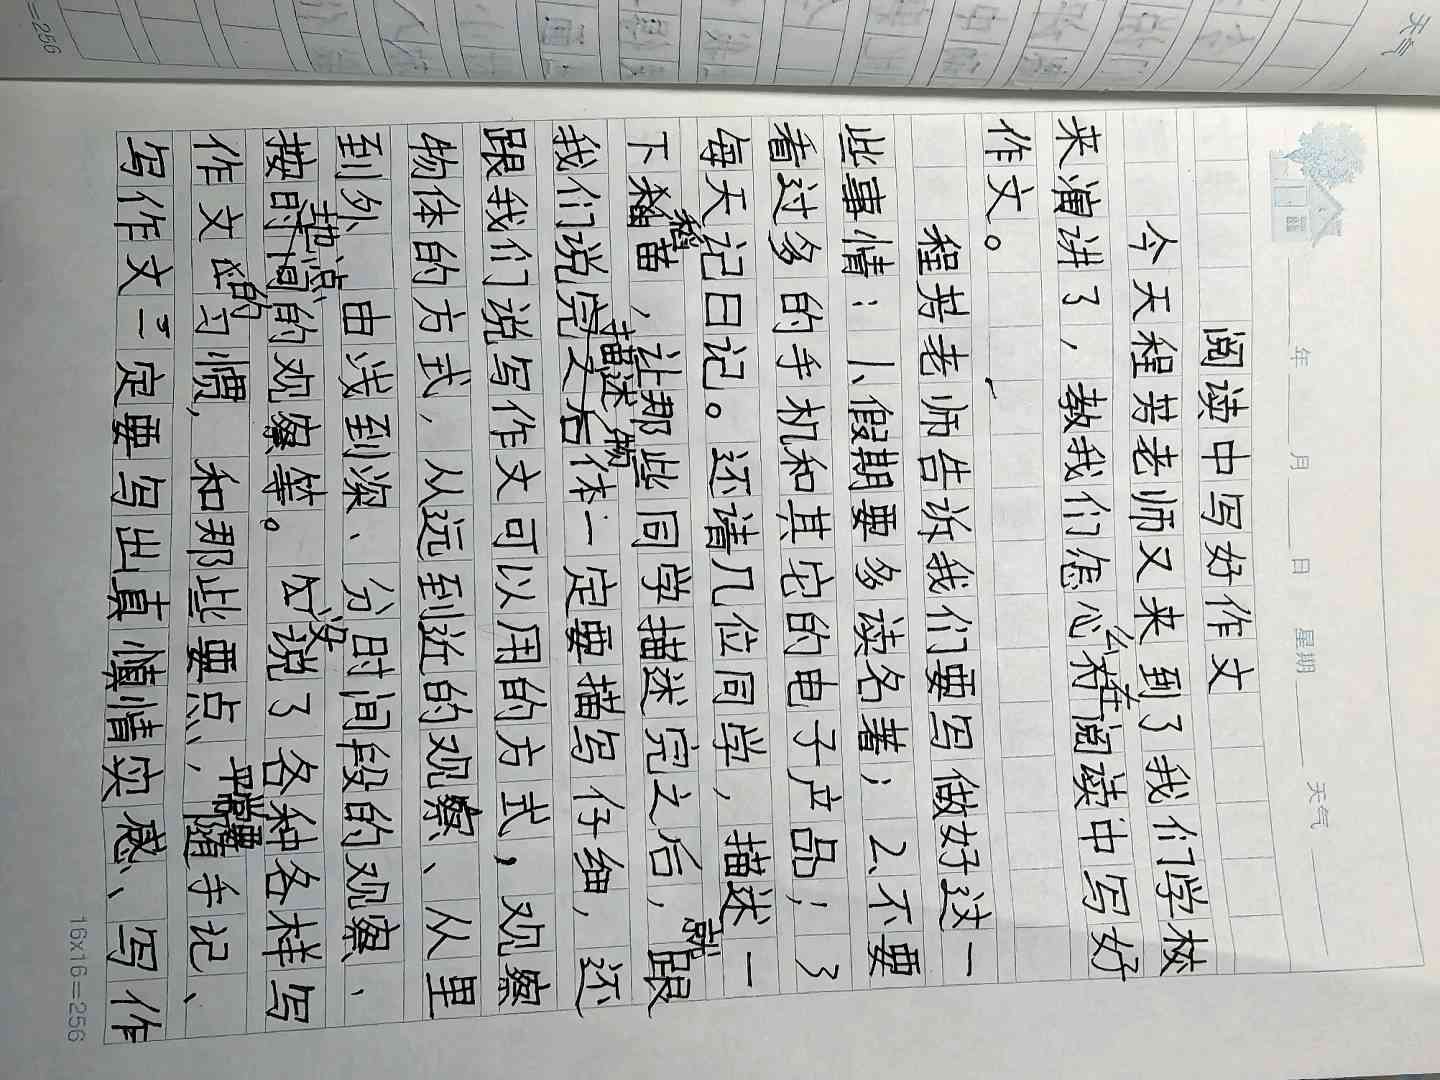 天气
=256
年 月 日 星期 天气
阅读中写好作文
今天程芳老师又来到了我们学校
来演讲了，教我们怎么样在阅读中写好
作文。
程芳老师告诉我们要写做好这一
些事情：1、假期要多读名著；2、不要
看过多的手机和其它的电子产品；3
每天记日记。还请几位同学，描述一
下稻苗，让那些同学描述完之后，就跟
我们说完之后描述物体一定要描写仔细，还
跟我们说写作文可以用的方式，观察
物体的方式，从远到近的观察、从里
到外、由浅到深、分时间段的观察、
按地点的观察等。还说了各种各样写
作文的习惯，和那些要点，平常要随手记、
写作文一定要写出真情实感、写作
16x16=256